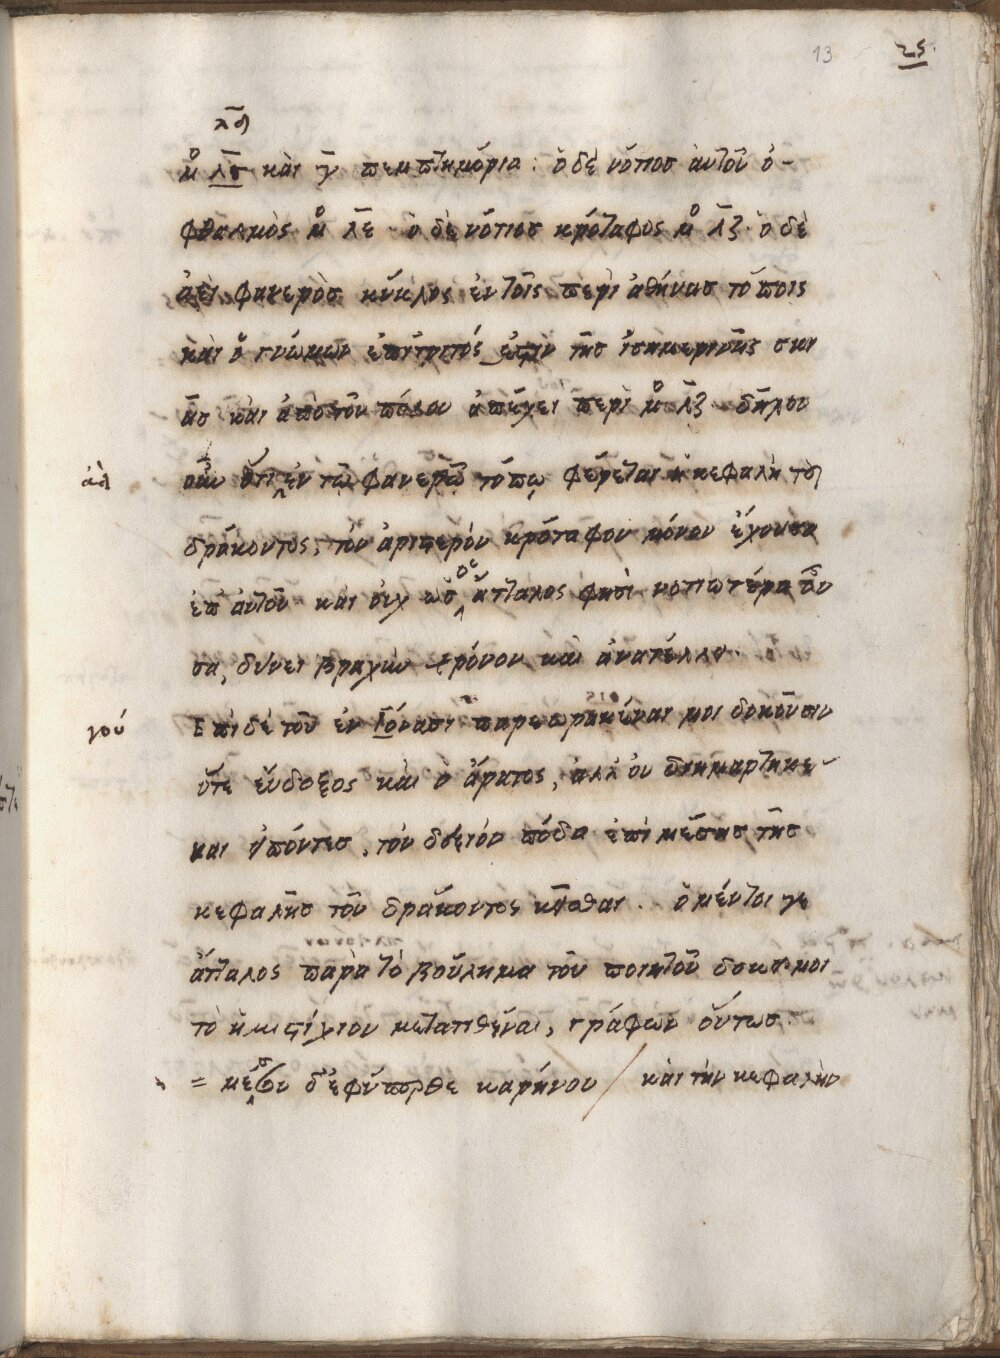 13 25
λδ
μο λς καὶ γ πεμπτημόρια: ὁ δὲ νότιος ἀυτοῦ ὀ-
φθαλμὸς μο λε· ὁ δὲ νότιος κρόταφος μο λζ· ὁ δὲ
ἀεὶ φανερὸς κύκλος ἐν τοῖς περὶ ἀθήνας τόποις
καὶ ὁ γνώμων ἐπίτριτός ἐστιν τῆς ἰσημερινῆς σκι
ᾶς καὶ ἀπὸ τοῦ πόλου ἀπέχει περὶ μο λζ δῆλον
ἀεὶ οὖν ὅτι ἐν τῶ φανερῶ τόπω φέρεται ἡ κεφαλὴ τοῦ
δράκοντος, τὸν ἀριστερὸν κρόταφον μόνον ἔχουσα
ἐπ' ἀυτοῦ καὶ οὐχ ὡς ὁ ἄτταλος φησὶ νοτιωτέρα οὖ
σα, δύνει βραχὺν χρόνον καὶ ἀνατέλλει.
γού Επὶ δὲ τοῦ ἐν Γόνασι παρεωρακέναι μοι δοκοῦσιν
ὅτε ἔυδοξος καὶ ὁ ἄρατος, ἀλλ' οὐ διημαρτηκέ-
ναι εἰπόντες, τὸν δεξιὸν πόδα ἐπὶ μέσης τῆς
κεφαλῆς τοῦ δράκοντος κεῖσθαι. ὁ μέντοι γε
ἄτταλος παρὰ τὸ βούλημα τοῦ ποιητοῦ δοκεῖ μοι
τὸ ἡμιστίχιον μετατιθέναι, γράφων οὕτως.
= μέσσου δ' ἐφύπερθε καρήνου / καὶ τὴν κεφαλὴν